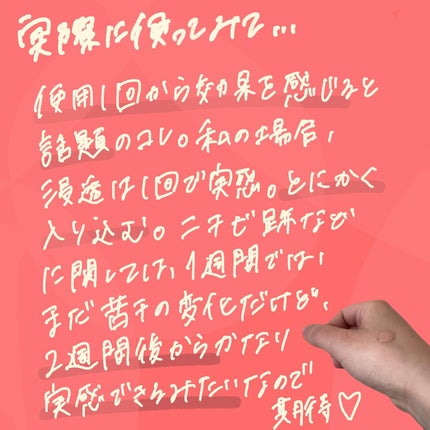 実際に使ってみて...
使用1回から効果を感じると
話題のコレ。私の場合、
浸透は1回で実感。とにかく
入り込む。ニキビ跡など
に関しては、1週間では、
まだ若干の変化だけど、
2週間後からかなり
実感できるみたいなので
期待♡